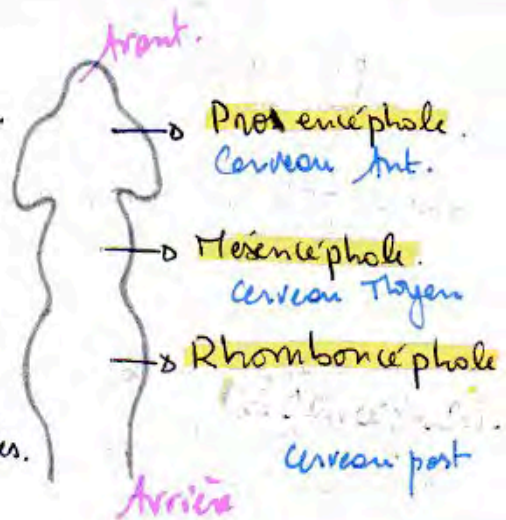 Avant.
Prosencéphale.
Cerveau Ant.
Mésencéphale.
Cerveau Moyen
Rhomboncéphale
es.
Cerveau post
Arrière